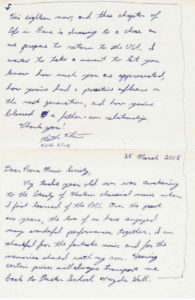 He's eighteen now, and this chapter of
life in Berne is drawing to a close as
we prepare to return to the USA. I
wanted to take a moment to let you
know how much you are appreciated,
how you've had a positive influence on
the next generation, and how you've
blessed a father-son relationship.
Thank you!
Keith
25 March 2018
Dear Berne Music Society,
My twelve year old son was awakening
to the beauty of Western classical music when
I first learned of the Over the past
six years, the two of us have enjoyed
many wonderful performances together. I am
thankful for the fantastic music and for the
memories shared with my son. Hearing
certain pieces will always transport me
back to School Hall.